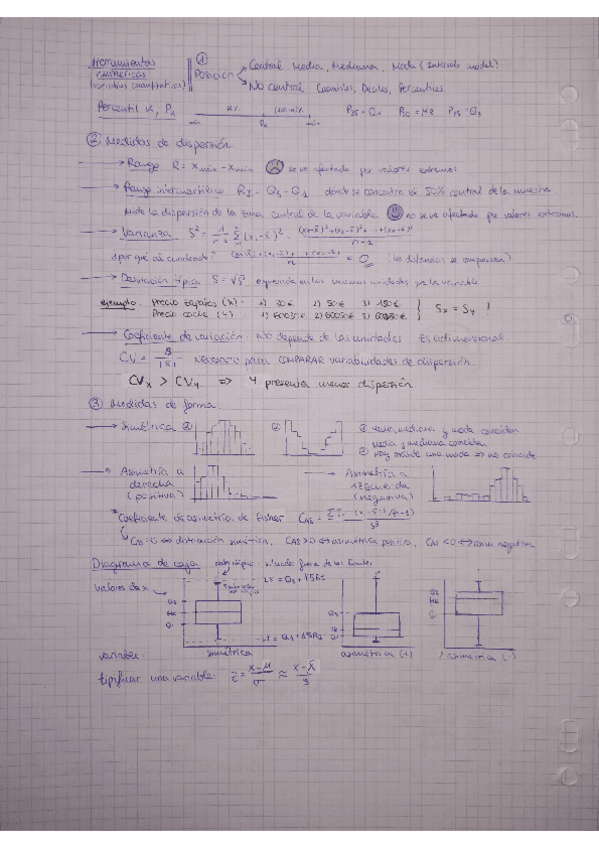 Herramientas numéricas (variables cuantitativas)
① Posición
Central Media, Mediana, Moda (Intervalo modal)
No central Cuantiles, Deciles, Percentiles
Percentil K, PK
K% (100-K)%
min PK
P25 = Q1 P50 = Me P75 = Q3
② Medidas de dispersión
→ Rango R = xmáx - xmín ☹ se ve afectado por valores extremos
→ Rango intercuartílico RI = Q3 - Q1 donde se concentra el 50% central de la muestra
mide la dispersión de la zona central de la variable ☺ no se ve afectado por valores extremos.
→ Varianza S² =
n-1
¿por qué al cuadrado? = 0 las distancias se compensan
→ Desviación típica S = √S² expresada en las mismas unidades que la variable
ejemplo. Precio zapatos (X): 1) 30€ 2) 50€ 3) 150€
Precio coche (Y): 1) 2) 3)
Sx = Sy !
→ Coeficiente de variación No depende de las unidades Es adimensional
CV = S / |x̄| necesario para COMPARAR variabilidades de dispersión
CVx > CVy => Y presenta menor dispersión
③ Medidas de forma
→ Simétrica ① ②
① media, mediana y moda coinciden
② media y mediana coinciden
hay más de una moda => no coincide
→ Asimetría a derecha (positiva)
→ Asimetría a izquierda (negativa)
*Coeficiente de asimetría de Fisher CAS =
CAS = 0 ⇔ distribución simétrica, CAS > 0 ⇔ asimétrica positiva, CAS < 0 ⇔ asim negativa
Diagrama de caja
valores de x
Q3
Me
Q1
LS = Q3 + 1'5
simétrica
asimétrica (+)
asimétrica (-)
variable
tipificar una variable: z = x-μ / σ ≈ x-x̄ / s